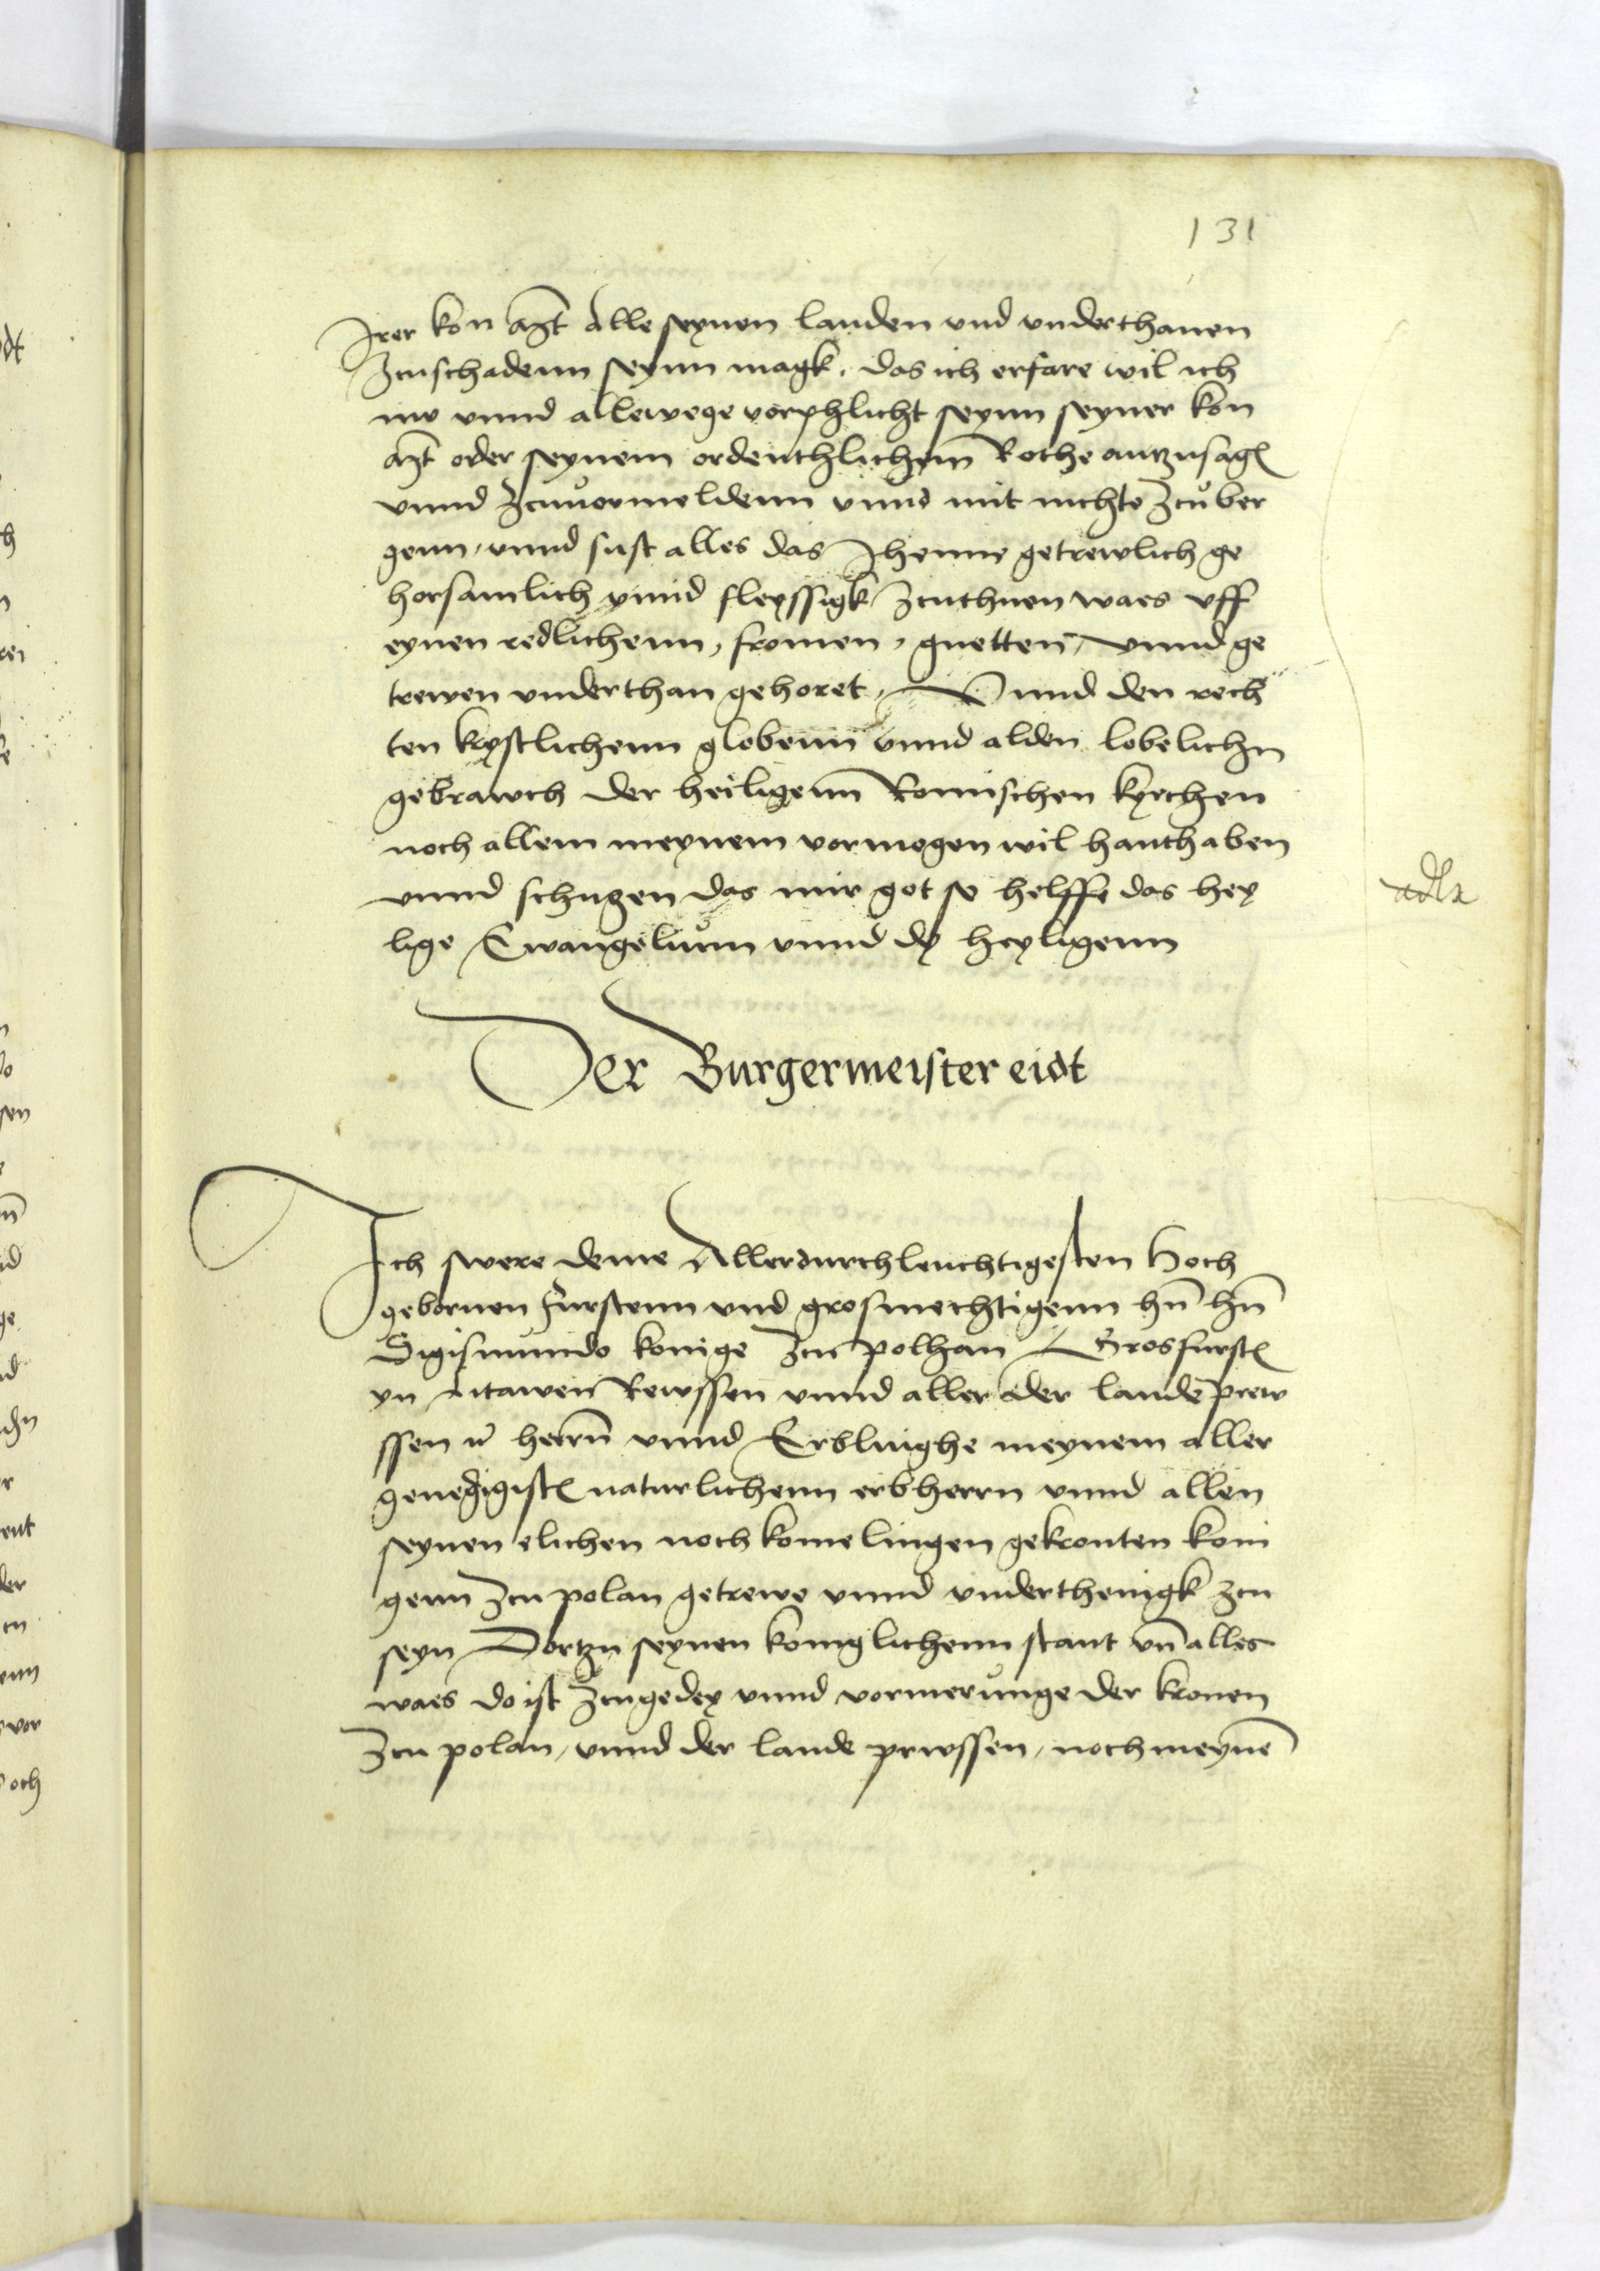 131
Irer kon Mt Alle seynen landen vnd vnderthanen
zcuschadenn seynn magk. das ich erfare wil ich
nw vnnd allewege vorphlicht seynn seyner kon
Mt oder seynem ordenthlichem Rothe antzusag
vnnd zcuuormeldenn vnnd mit nichte zcuber
genn, vnnd sust alles das Jhenne getrewlich ge
horsamlich vnnd fleyssigk zcuthuen waes vff
eynen redlichenn, fromen, guetten, vnnd ge
trewen vnderthan gehoret, Vnnd den rech
ten krystlichenn globenn vnnd alden lobelichn
gebrawch der heiligenn Romischen kyrchen
noch allem meynem vormogen wil hanthaben
vnnd schuczen das mir got so helffe das hey
lige Ewangelium vnnd dy heyligenn
Der Burgermeister eidt
Ich swere deme Allerdurchleuchtigesten Hoch
gebornen furstenn vnd grosmechtigenn hn hn
Sigismundo konige zcu polhan Grosfurst
yn litawen Rewssen vnnd aller der lande prew
ssen herrn vnnd Erblinghe meynem aller
genedigist naturlichenn erbherrn vnnd allen
seynen elichen noch komelingen gekronten koni
genn zcu polan getrewe vnnd vnderthenigk zcu
seyn Dortzu seynen koniglichenn stant vn alles
waes do ist zcugedey vnnd vormerunge der kronen
zcu polan, vnnd der lande prwssen, noch meyne